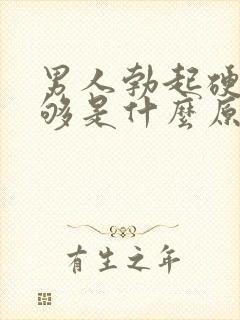 男人勃起硬
够是什麼原
有生之年